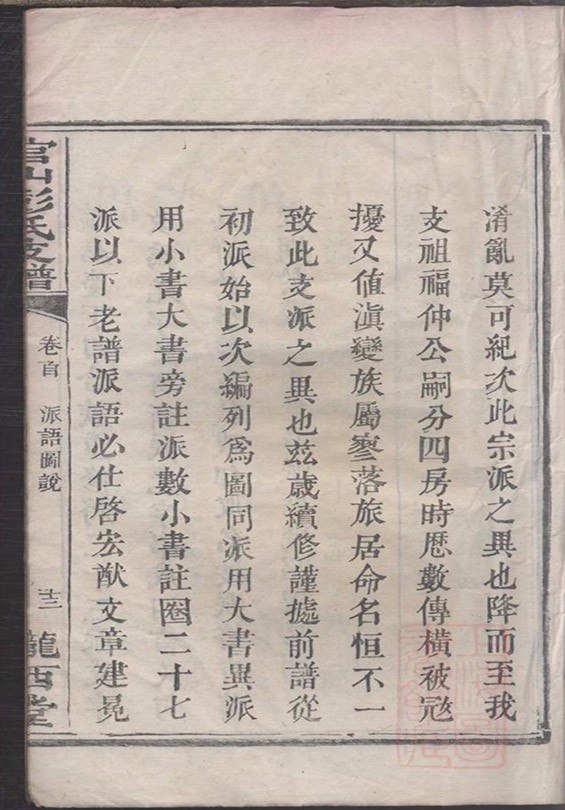 淆亂莫可紀次此宗派之異也降而至我
支祖福仲公嗣分四房時厯數傳橫被寇
擾又值滇變族屬寥落旅居命名恒不一
致此支派之異也茲歲續修謹據前譜從
初派始以次編列爲圖同派用大書異派
用小書大書旁註派數小書註圈二十七
派以下老譜派語必仕啓宏猷文章建冕
官山彭氏支譜
卷首 派語圖說
十三
隴西堂